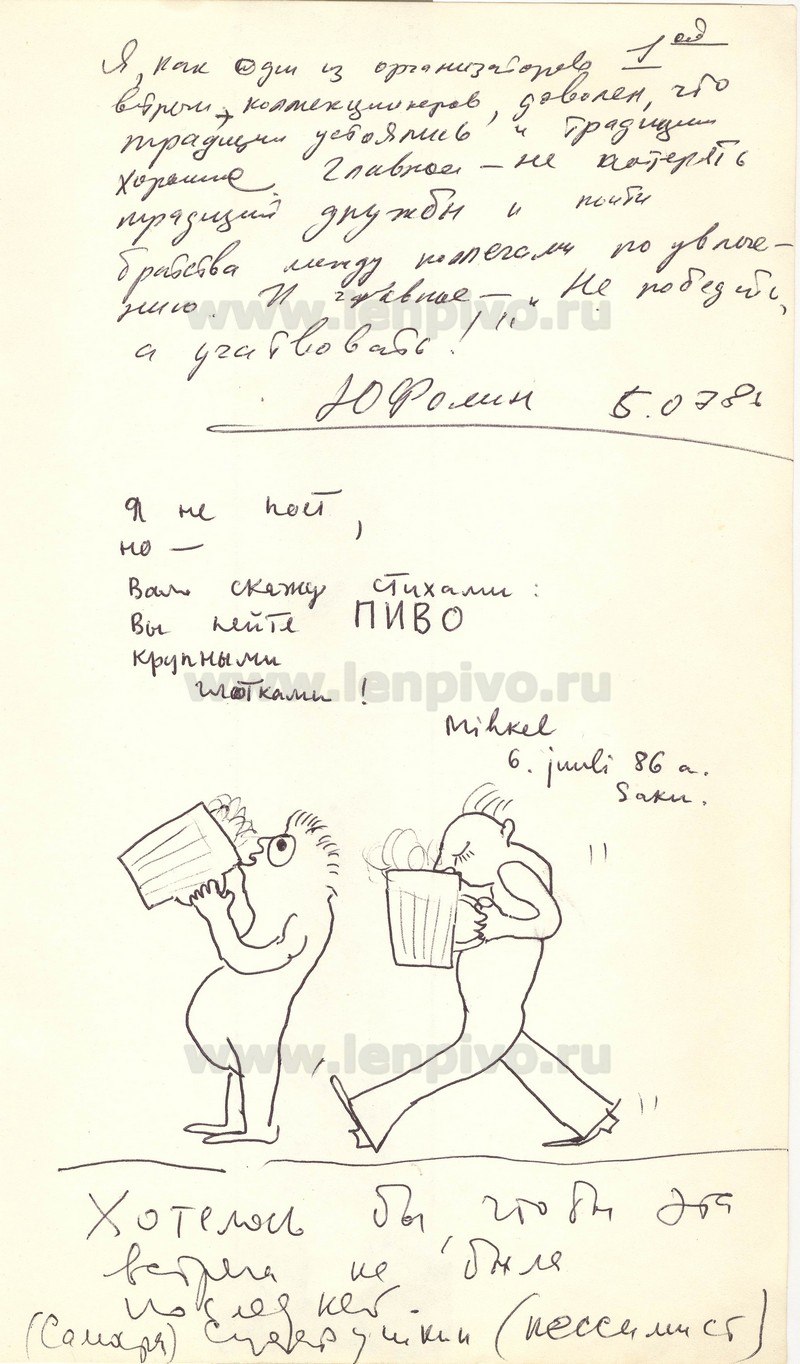 Я, как один из организаторов 1ой
встречи коллекционеров, доволен, что
традиции устоялись и традиции
хорошие. Главное – не потерять
традиций дружбы и почти
братства между коллегами по увлече-
нию. И главное – "Не победить,
а учатвовать!"
ЮФомин 5.07 8
www.lenpivo.ru
Я не поэт,
но –
Вам скажу стихами:
Вы пейте ПИВО
крупными
глотками!
www.lenpivo.ru
Mihkel
6. juuli 86 a.
Saku.
www.lenpivo.ru
Хотелось бы, чтобы эта
встреча не была
последней.
(Самара) (пессимист)